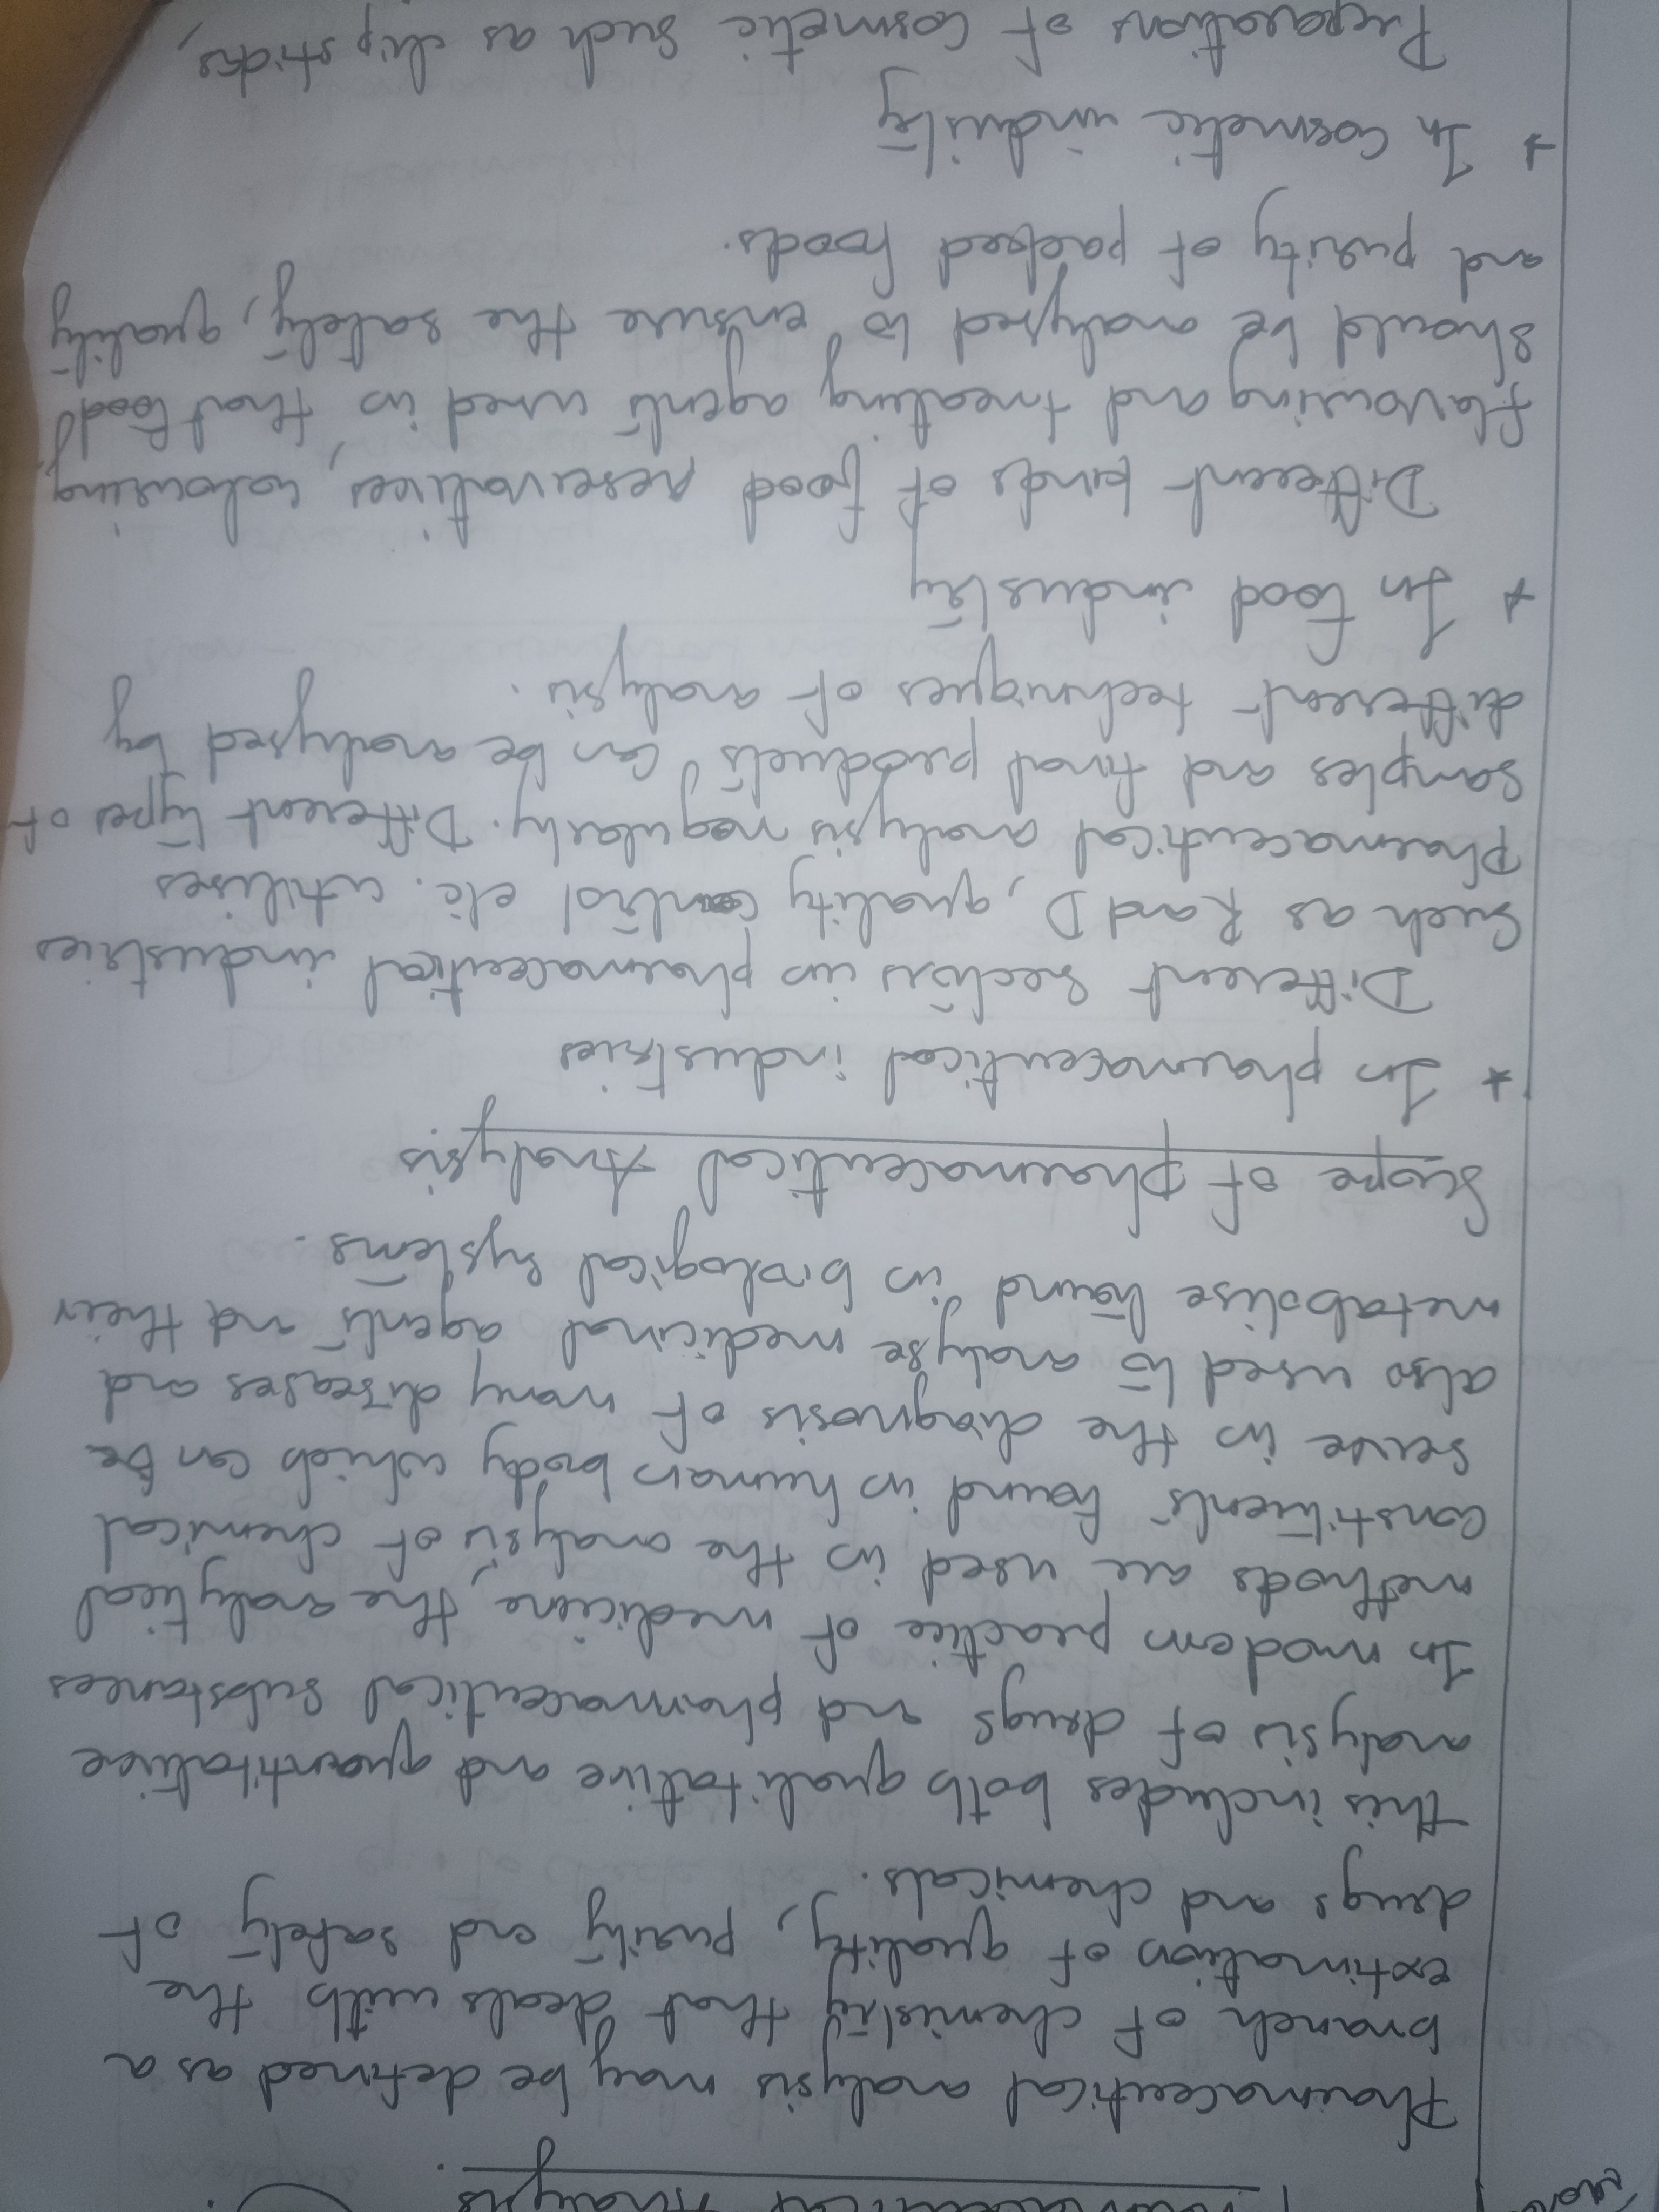 Pharmaceutical Analysis
Pharmaceutical analysis may be defined as a
branch of chemistry that deals with the
extimation of quality, purity and safety of
drugs and chemicals.
this includes both qualitative and quantitative
analysis of drugs and pharmaceutical substances
In modern practice of medicine, the analytical
methods are used in the analysis of chemical
constituents found in human body which can be
serve in the diagnosis of many diseases and
also used to analyse medicinal agents and their
metabolise found in biological systems.
Scope of pharmaceutical Analysis
* In pharmaceutical industries
Different sectors in pharmaceutical industries
Such as R and D, quality control etc. utilises
Pharmaceutical analysis regularly. Different types of
Samples and final products can be analysed by
different techniques of analysis.
* In food industry
Different kinds of food preservatives, colouring
flavouring and treating agents used in that food
should be analysed to ensure the safety, quality
and purity of packed foods.
* In cosmetic industry
Preparations of cosmetic such as lip sticks,